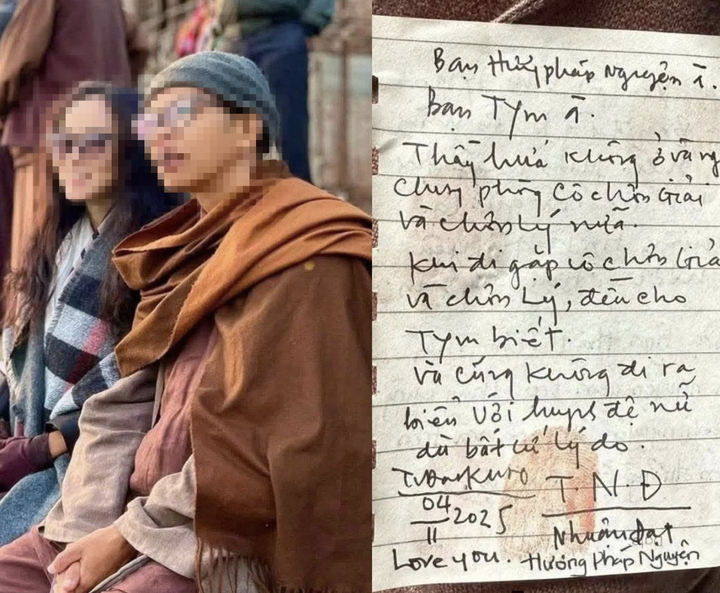 Bạn Hướng pháp Nguyện à.
Bạn Tym à.
Thầy hứa không ở và ng
chung phòng cô chơn Giải
và chơn Lý nữa.
Khi đi gặp cô chơn Giả
và chơn Lý, đều cho
Tym biết.
và cũng không đi ra
biển với huynh đệ nữ
dù bất cứ lý do.
04
11
2025
T.N.Đ
Nhuận đạt
Love you. Hướng Pháp Nguyện